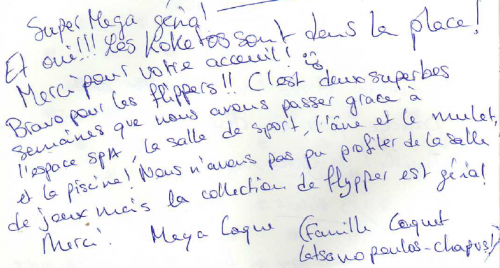 Super Mega génial
Et oui!!! Les Koketos sont dans la place!
Merci pour votre acceuil!
Bravo pour les flippers!! C'est deux superbes
semaines que nous avons passer grace à
l'espace SPA, la salle de sport, l'âne et le mulet,
et la piscine! Nous n'avons pas pu profiter de la salle
de jeux mais la collection de flypper est génial
Merci. Mega Coque (Famille Coquet
Letsonopoulos-Chapus)